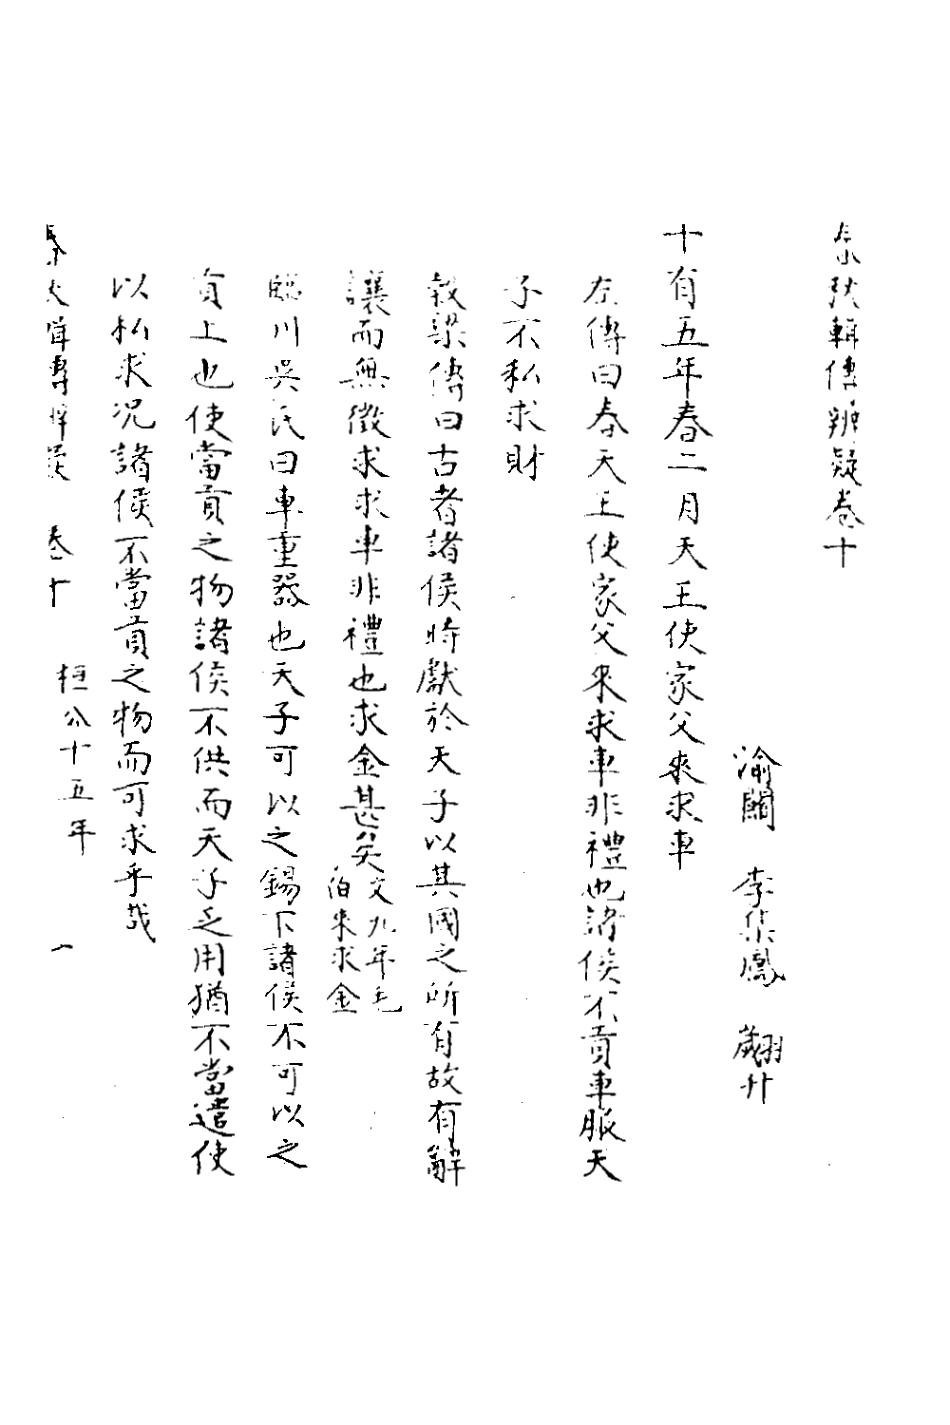 春秋輯傳辨疑卷十
渝關　李集鳳　翽升
十有五年春二月天王使家父來求車
左傳曰春天王使家父來求車非禮也諸侯不貢車服天
子不私求財
穀梁傳曰古者諸侯時獻於天子以其國之所有故有辭
讓而無徵求求車非禮也求金甚矣文九年毛
伯來求金
臨川吳氏曰車重器也天子可以之錫下諸侯不可以之
貢上也使當貢之物諸侯不供而天子乏用猶不當遣使
以私求况諸侯不當貢之物而可求乎哉
春秋輯傳辨疑　卷十　桓公十五年　一